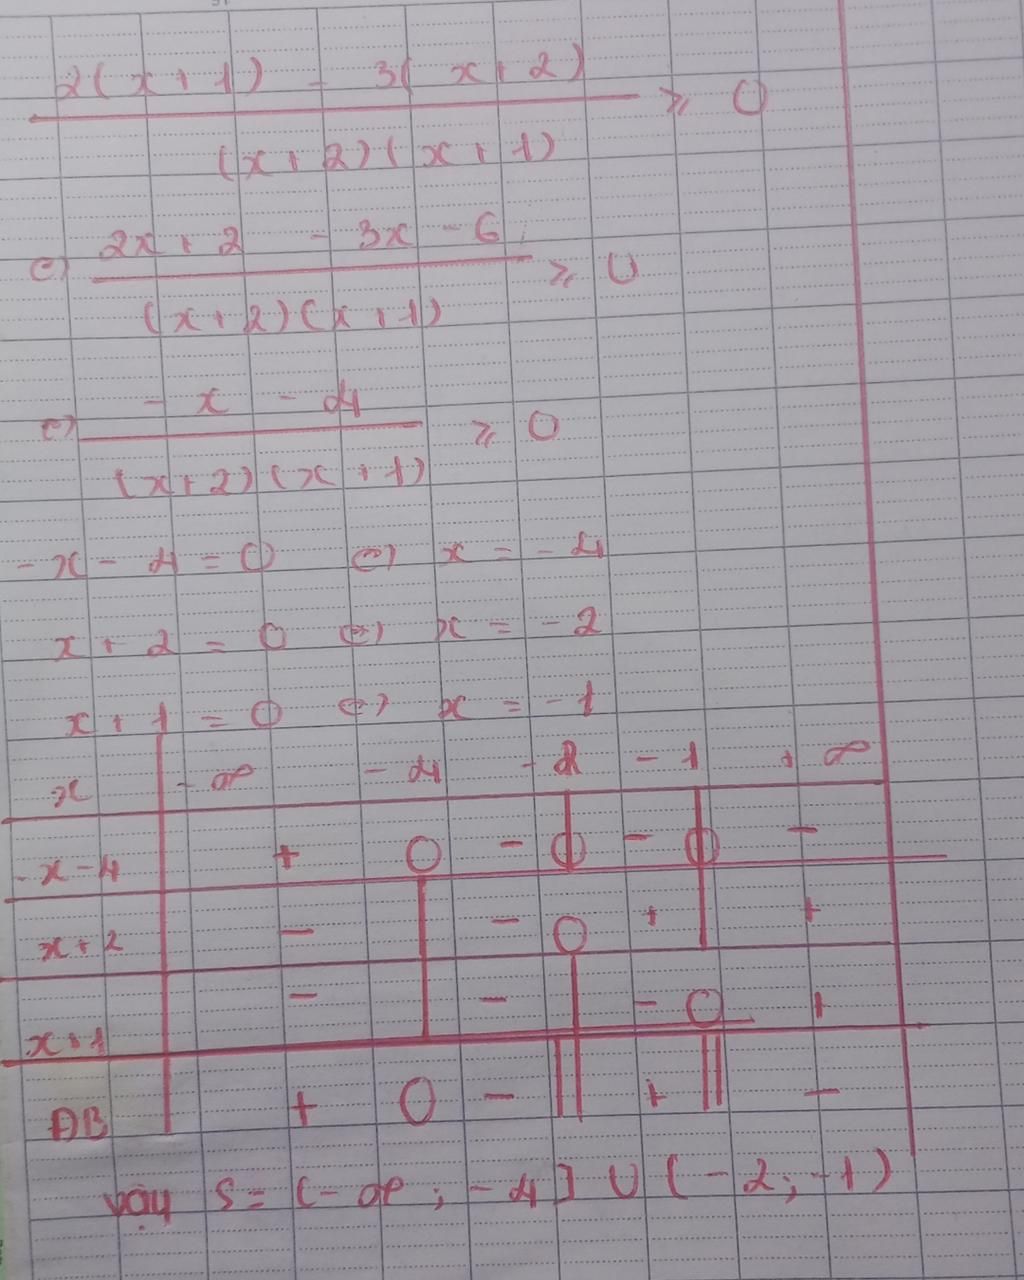 2(x+1) - 3(x+2)
≥ 0
(x+2)(x+1)
2x+2 - 3x - 6
⇔ ≥ 0
(x+2)(x+1)
-x - 4
⇔ ≥ 0
(x+2)(x+1)
-x - 4 = 0 ⇔ x = -4
x + 2 = 0 ⇔ x = -2
x + 1 = 0 ⇔ x = -1
x -∞ -4 -2 -1 +∞
-x-4 + 0 - 0 - 0 -
x+2 - - 0 + +
x+1 - - - 0 +
ĐB + 0 - || + || -
vậy S = (-∞; -4] ∪ (-2; -1)